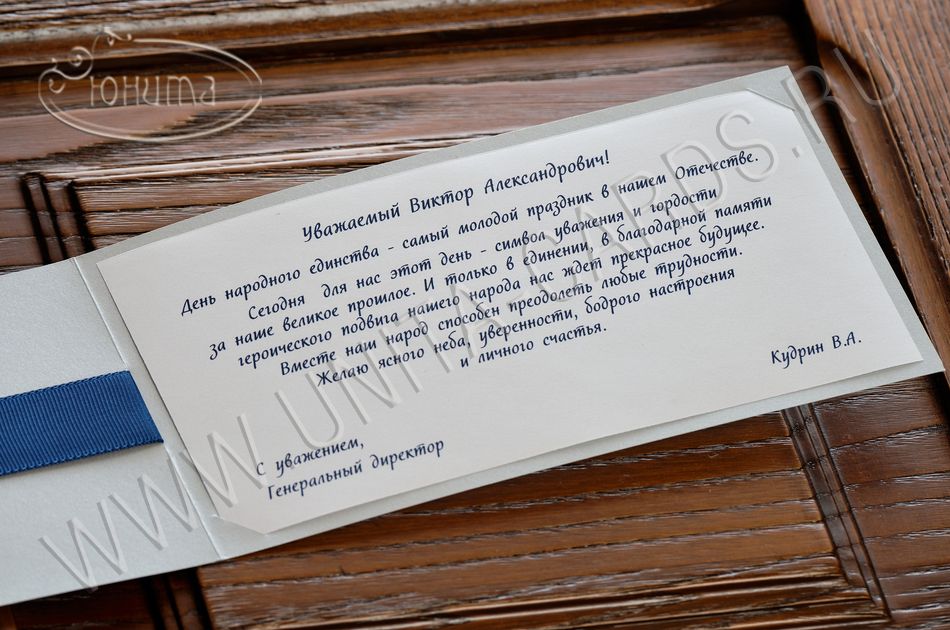 Юнита
Уважаемый Виктор Александрович!
День народного единства - самый молодой праздник в нашем Отечестве.
Сегодня для нас этот день - символ уважения и гордости
за наше великое прошлое. И только в единении, в благодарной памяти
героического подвига нашего народа нас ждет прекрасное будущее.
Вместе наш народ способен преодолеть любые трудности.
Желаю ясного неба, уверенности, бодрого настроения
и личного счастья.
С уважением,
Генеральный директор
Кудрин В.А.
WWW.UNITA-CARDS.RU